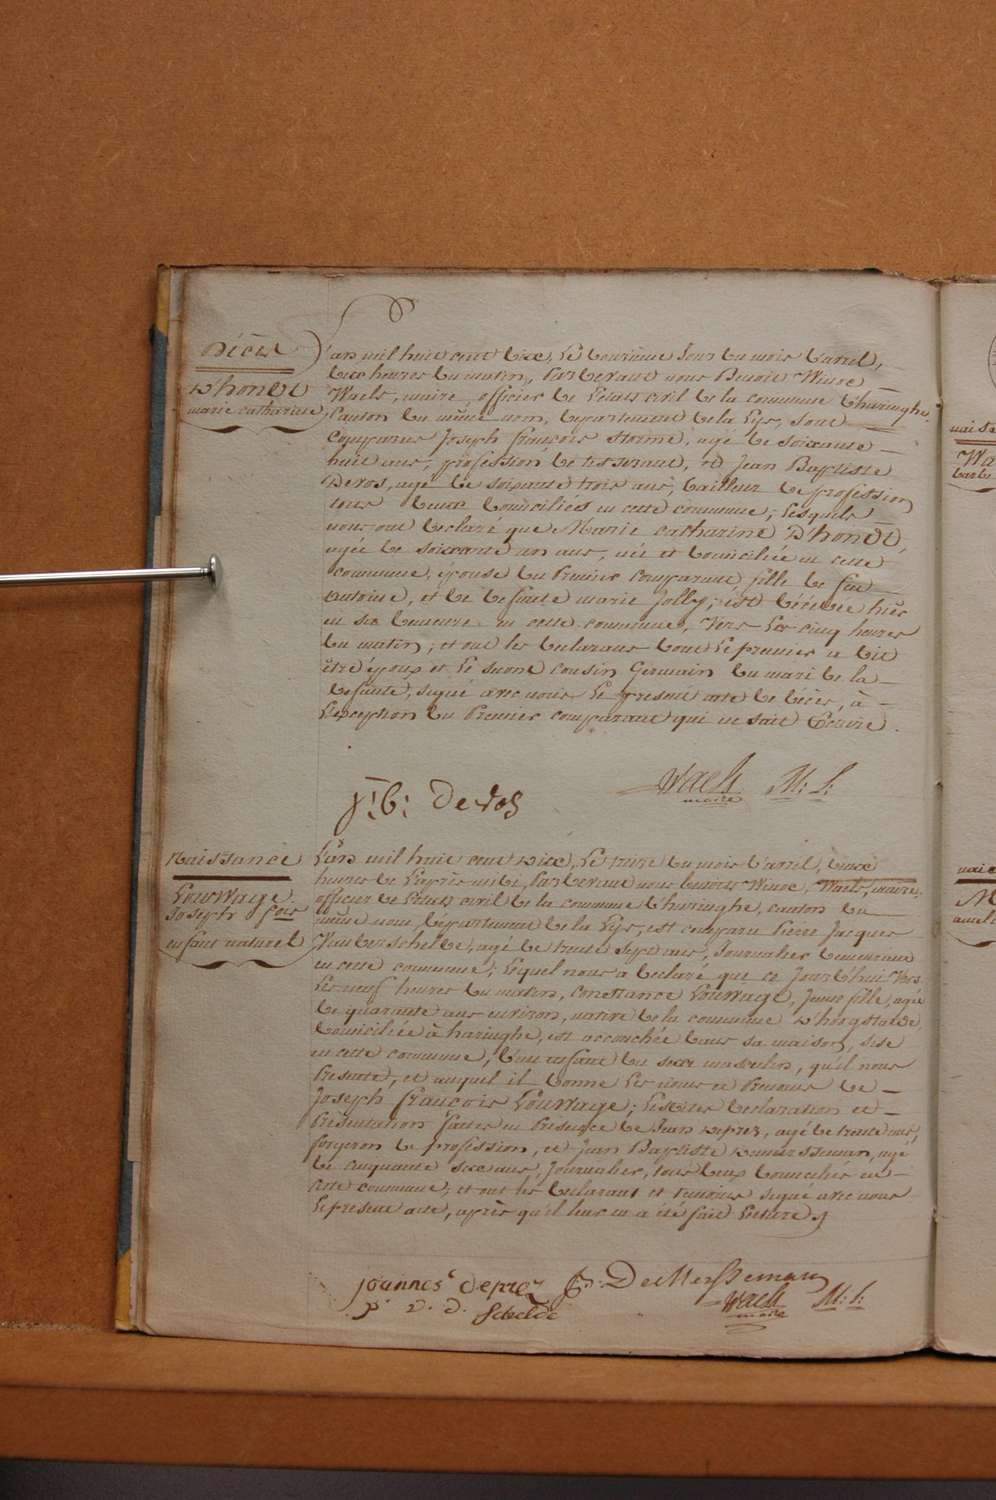 Décès
D'hondt
marie catharine
L'an mil huit cent dix, Le douzième Jour du mois d'avril,
dix heures du matin, Pardevant nous Benoit Winoc
Waels, maire, officier de l'état civil de la commune d'haringhe,
Canton du même nom, département de la Lys, sont
Comparus Joseph françois Storme, agé de soixante
huit ans, profession de tisserant, et Jean Baptiste
Devos, agé de soixante trois ans, tailleur de profession
tous deux domiciliés en cette commune; Lesquels
nous ont déclaré que Marie catharine D'hondt,
agée de soixante un ans, née et domiciliée en cette
commune, épouse du Premier comparant, fille de feu
antoine, et de defunte marie Jolly, est décédée hier
en sa demeure en cette commune, Vers Les cinq heures
du matin; et ont les declarans dont Le premier a dit
être époux et Le second cousin Germain du mari de la
defunte, signé avec nous Le present acte de décès, à
L'exception du Premier comparant qui ne sait Ecrire.
Waels M: L:
maire
J: b: Devos
Naissance
Louwage
Joseph fçois
enfant naturel
L'an mil huit cent dix, Le treize du mois d'avril, deux
heures de L'après midi, Pardevant nous benoit Winoc Waels, maire,
officier de L'état civil de la commune d'haringhe, canton du
même nom, département de la Lys, est comparu Pierre Jacques
Vanderschelde, agé de trente sept ans, Journalier demeurant
en cette commune; Lequel nous a declaré que ce Jourd'hui Vers
Les neuf heures du matin, constance Louwage, Jeune fille, agée
de quarante ans environ, native de la commune d'hoogstaede,
domiciliée à haringhe, est accouchée dans sa maison, sise
en cette commune, d'un enfant du sexe masculin, qu'il nous
Presente, et auquel il donne Les noms et Prenoms de
Joseph françois Louwage; Lesdites declaration et
Présentation faites en Présence de Jean deprez, agé de trente ans,
forgeron de profession, et Jean Baptiste demerssseman, agé
de cinquante six ans, Journalier, tous deux domiciliés en
cette commune; et ont les declarant et temoins signé avec nous
Le present acte, après qu'il leur en a été fait Lecture.
Joannes deprez J: B: DeMersseman
P: v. d. Schelde Waels M: L:
maire